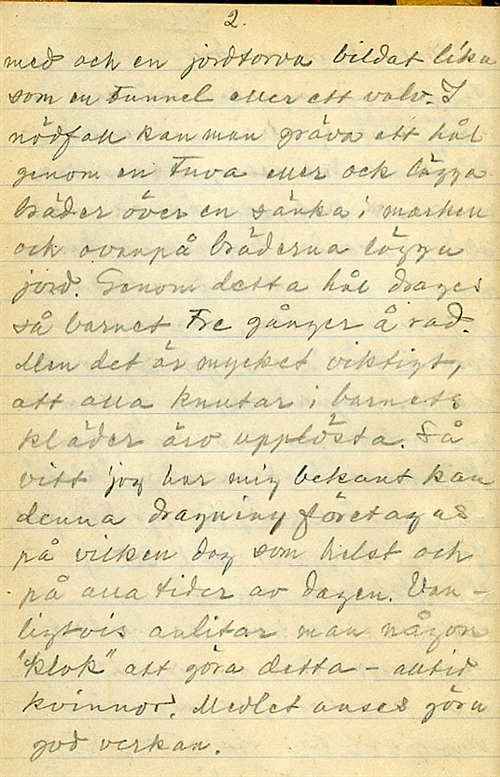 2.
med och en jordtorva bildat lika
som en tunnel eller ett valv. I
nödfall kan man gräva ett hål
genom en tuva eller ock lägga
bräder över en sänka i marken
och ovanpå bräderna lägga
jord. Genom detta hål drages
så barnet tre gånger å rad.
Men det är mycket viktigt,
att alla knutar i barnets
kläder äro upplösta. Så
vitt jag har mig bekant kan
denna dragning företagas
på vilken dag som helst och
på alla tider av dagen. Van-
ligtvis anlitar man någon
"klok" att göra detta - alltid
kvinnor. Medlet anses göra
god verkan.